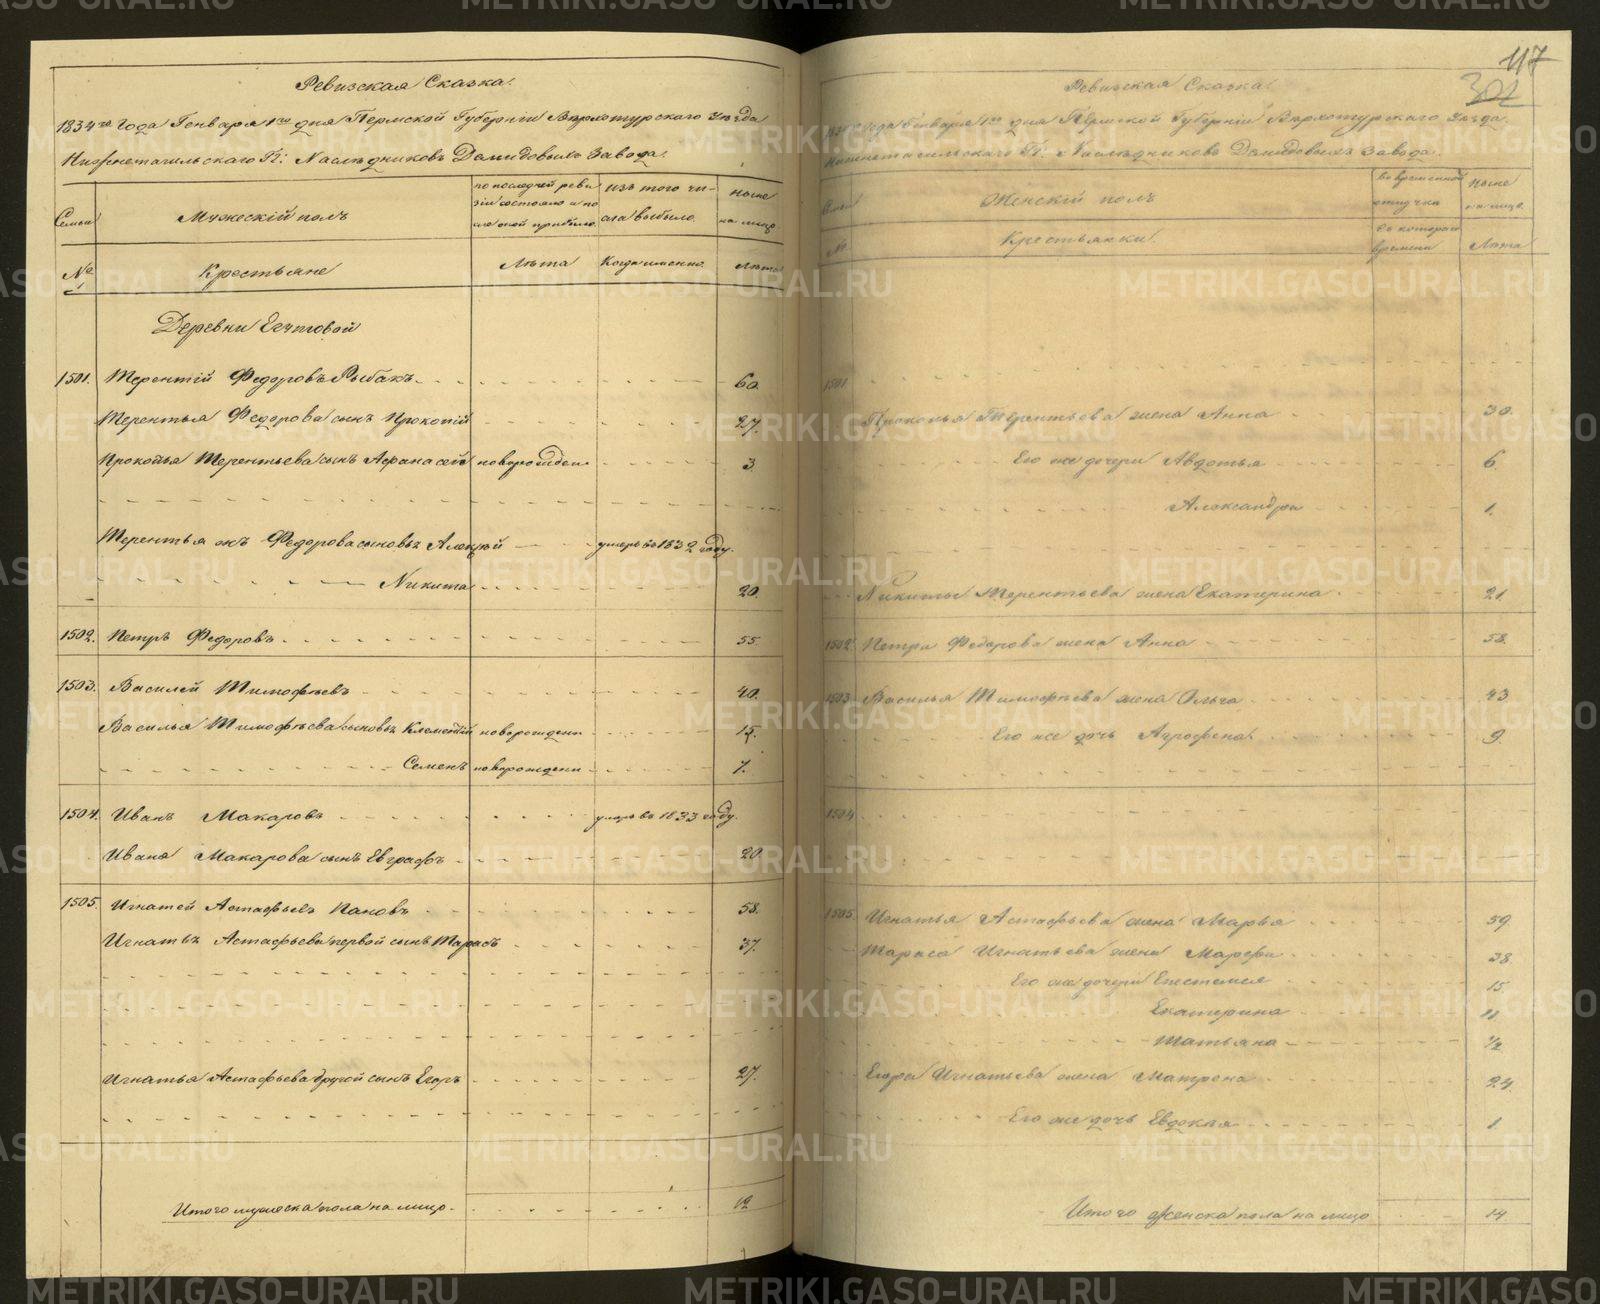 Ревизская Сказка.
1834го Года Генваря 1го дня Пермской Губернии Верхотурского Уезда
Нижнетагильского Г: Наследниковъ Демидовыхъ Завода.
Семьи
Мужескій полъ
по последней реви
зіи состояло и по
сле оной прибыло.
Изъ того чи-
сла выбыло.
Ныне
на лицо
№
Крестьяне
Лѣта
Когда именно.
Лѣта
Деревни
1501. Терентій Федоровъ Рыбакъ 60.
Терентья Федорова сынъ Прокопій 27.
Прокопья Терентьева сынъ Афанасей новорожден 3.
Терентья Федорова сыновья Алексѣй умеръ въ 1832 году.
Никита 20.
1502. Петръ Федоровъ 55.
1503. Василей Тимофѣевъ 40.
Василья Тимофѣева сыновья Клементій новорожденн 15.
Семенъ новорожденн 7.
1504. Иванъ Макаровъ умеръ въ 1833 году.
Ивана Макарова сынъ Евграфъ 20.
1505. Игнатей Астафьевъ Пановъ 58.
Астафьева первой сынъ Тарасъ 37.
Игнатья Астафьева другой сынъ Егоръ 27.
Итого мужеска пола на лицо. 12
117
302
Ревизская Сказка.
1834 Года Генваря 1го дня Пермской Губернии Верхотурского Уезда.
Нижнетагильского Г: Наследниковъ Демидовыхъ Завода.
Семьи
Женскій полъ
во временной
отлучке
Ныне
на лицо.
№
Крестьянки.
съ котораго
времени
Лѣта
1501
Прокопья Терентьева жена Анна 30.
Его же дочери Авдотья 6.
Александра 1.
Никиты Терентьева жена Екатерина 21.
1502. Петра Федорова жена Анна 58.
1503. Василья Тимофѣева жена Ольга 43
Его же дочь Агрофена. 9.
1504
1505. Игнатья Астафьева жена Марья 59.
Тараса Игнатьева жена Марфа 38.
Его же дочери 15.
Екатерина 11.
Татьяна 1/2
Егора Игнатьева жена Матрена 24.
Его же дочь Евдокья 1.
Итого женска пола на лицо 14
METRIKI.GASO-URAL.RU